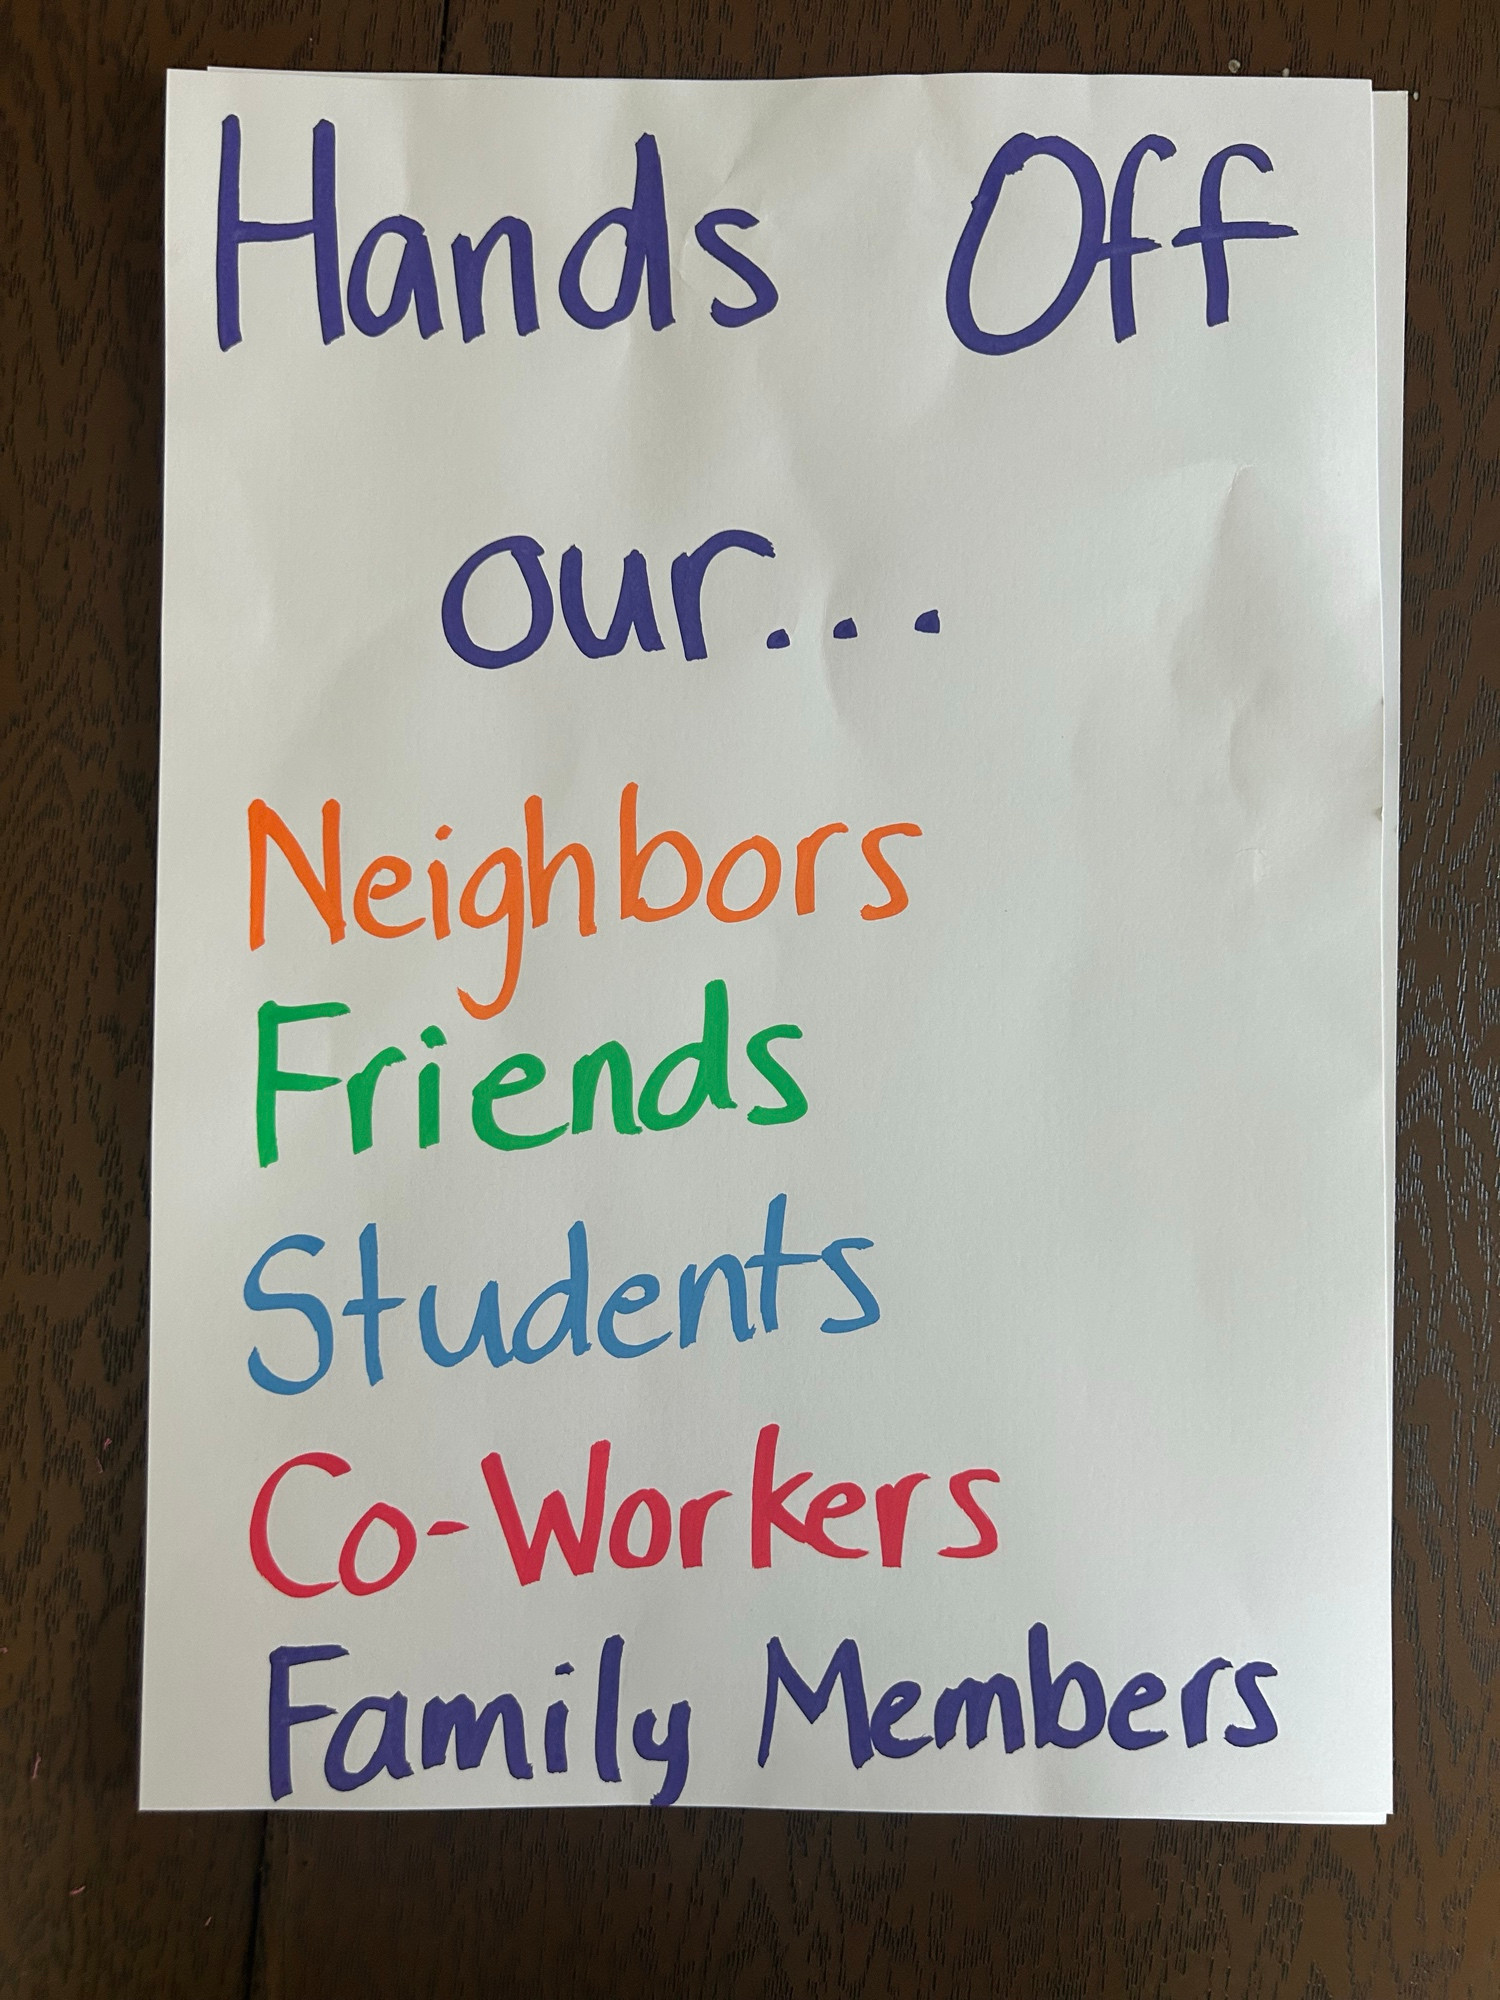 Hands Off
our...
Neighbors
Friends
Students
Co-Workers
Family Members